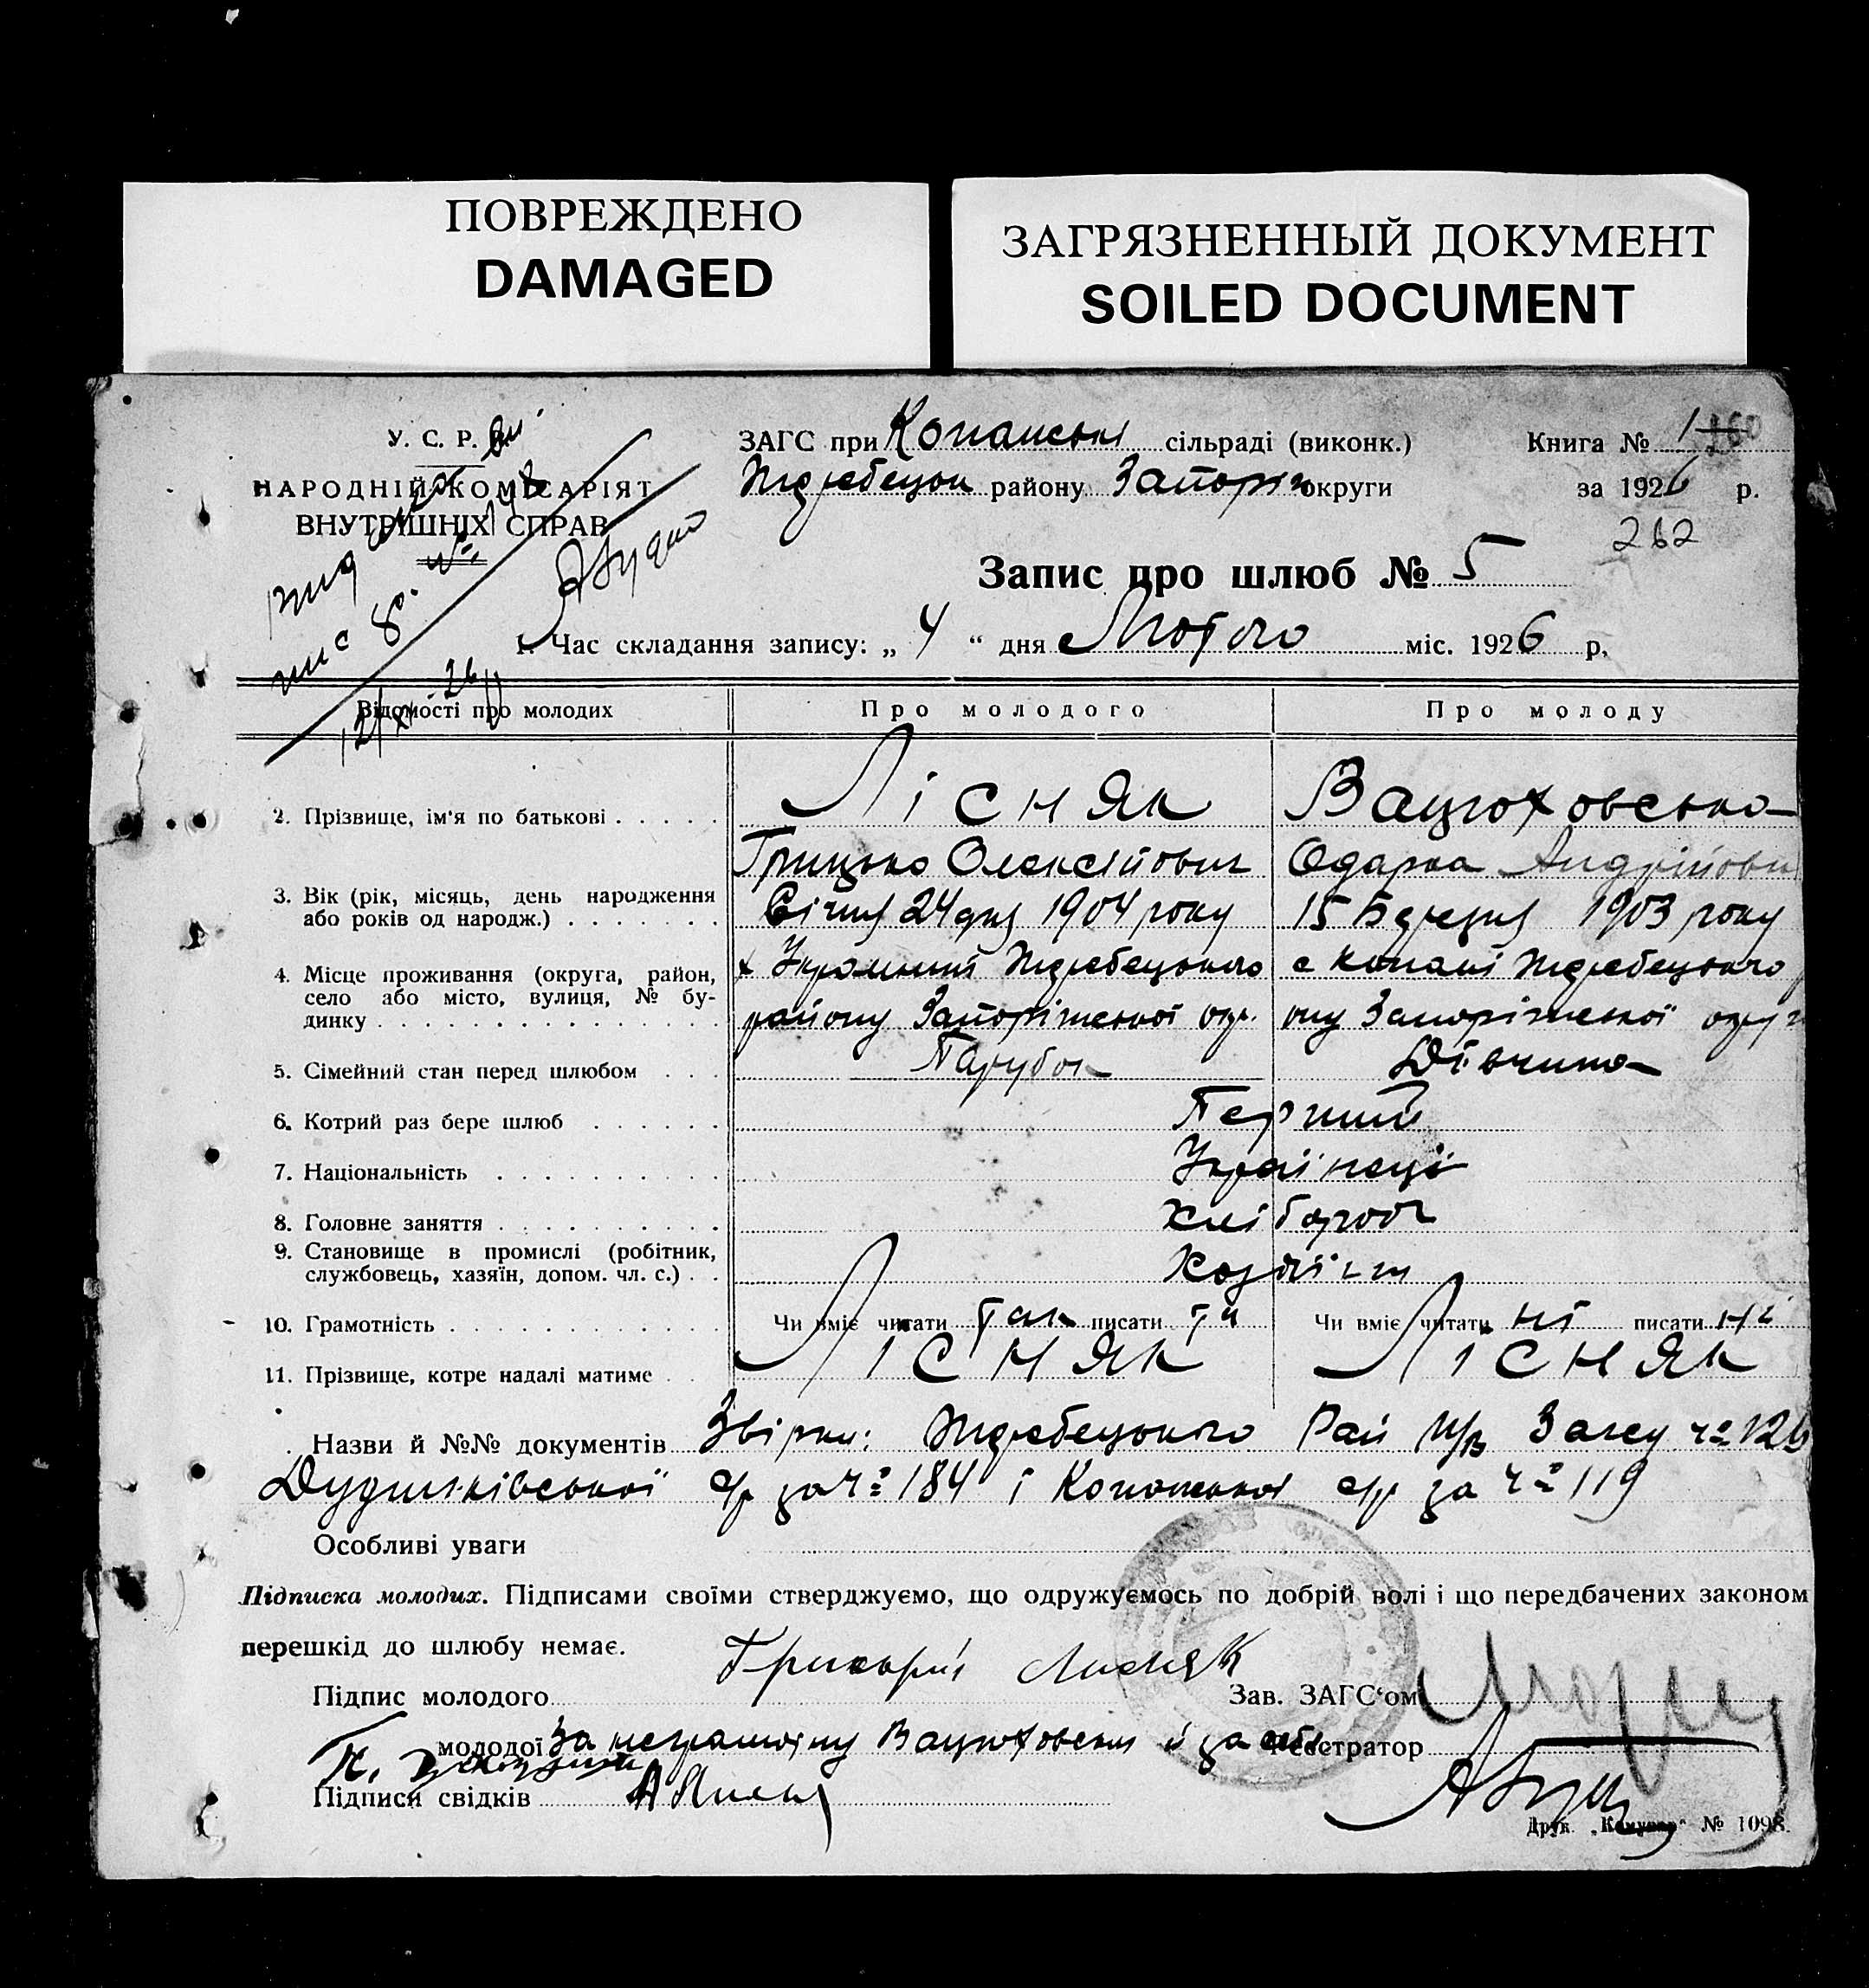 ПОВРЕЖДЕНО
DAMAGED
ЗАГРЯЗНЕННЫЙ ДОКУМЕНТ
SOILED DOCUMENT
У. С. Р. Р.
НАРОДНІЙ КОМІСАРІЯТ
ВНУТРІШНІХ СПРАВ
ЗАГС при Копанські сільраді (виконк.)
Книга № 1
Ждребецьк району Запоріж округи
за 1926 р.
262
Запис про шлюб № 5
1. Час складання запису: „ 4 “ дня Лютого міс. 1926 р.
Відомості про молодих
Про молодого
Про молоду
2. Прізвище, ім'я по батькові
Лісняк
Вацюховська
Грицько Олексійович
Одарка Андрійовн
3. Вік (рік, місяць, день народження
або років од народж.)
Січня 24 дня 1904 року
15 Березня 1903 року
4. Місце проживання (округа, район,
село або місто, вулиця, № бу-
динку
х Ждребецького
району Запоріжської окр.
с Копані Ждребецького
ону Запоріжської окру
5. Сімейний стан перед шлюбом
Парубок
Дівчина
6. Котрий раз бере шлюб
Перший
7. Національність
Українці
8. Головне заняття
Хлібороб
9. Становище в промислі (робітник,
службовець, хазяїн, допом. чл. с.)
Хозяїін
10. Грамотність
Чи вміє читати так писати та
Чи вміє читати ні писати ні
11. Прізвище, котре надалі матиме
Лісняк
Лісняк
Назви й №№ документів Звірки: Ждребецького Рай Загсу ч° 126
с/р за ч° 184 і Копанської с/р за ч° 119
Особливі уваги
Підписка молодих. Підписами своїми стверджуємо, що одружуємось по добрій волі і що передбачених законом
перешкід до шлюбу немає.
Підпис молодого Григорій Лисняк
Зав. ЗАГС'ом
молодої За неграмотну Вацюховську й за себе
Реєстратор
Підписи свідків
Друк. „Комунар“ № 1098.